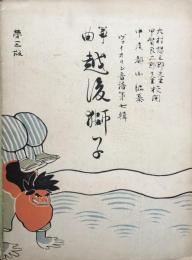 大村恕三郎先生校閲
甲賀良二郎先生校閲
中尾都山編纂
ヴァイオリン音譜第七輯
箏曲
越後獅子
第三版